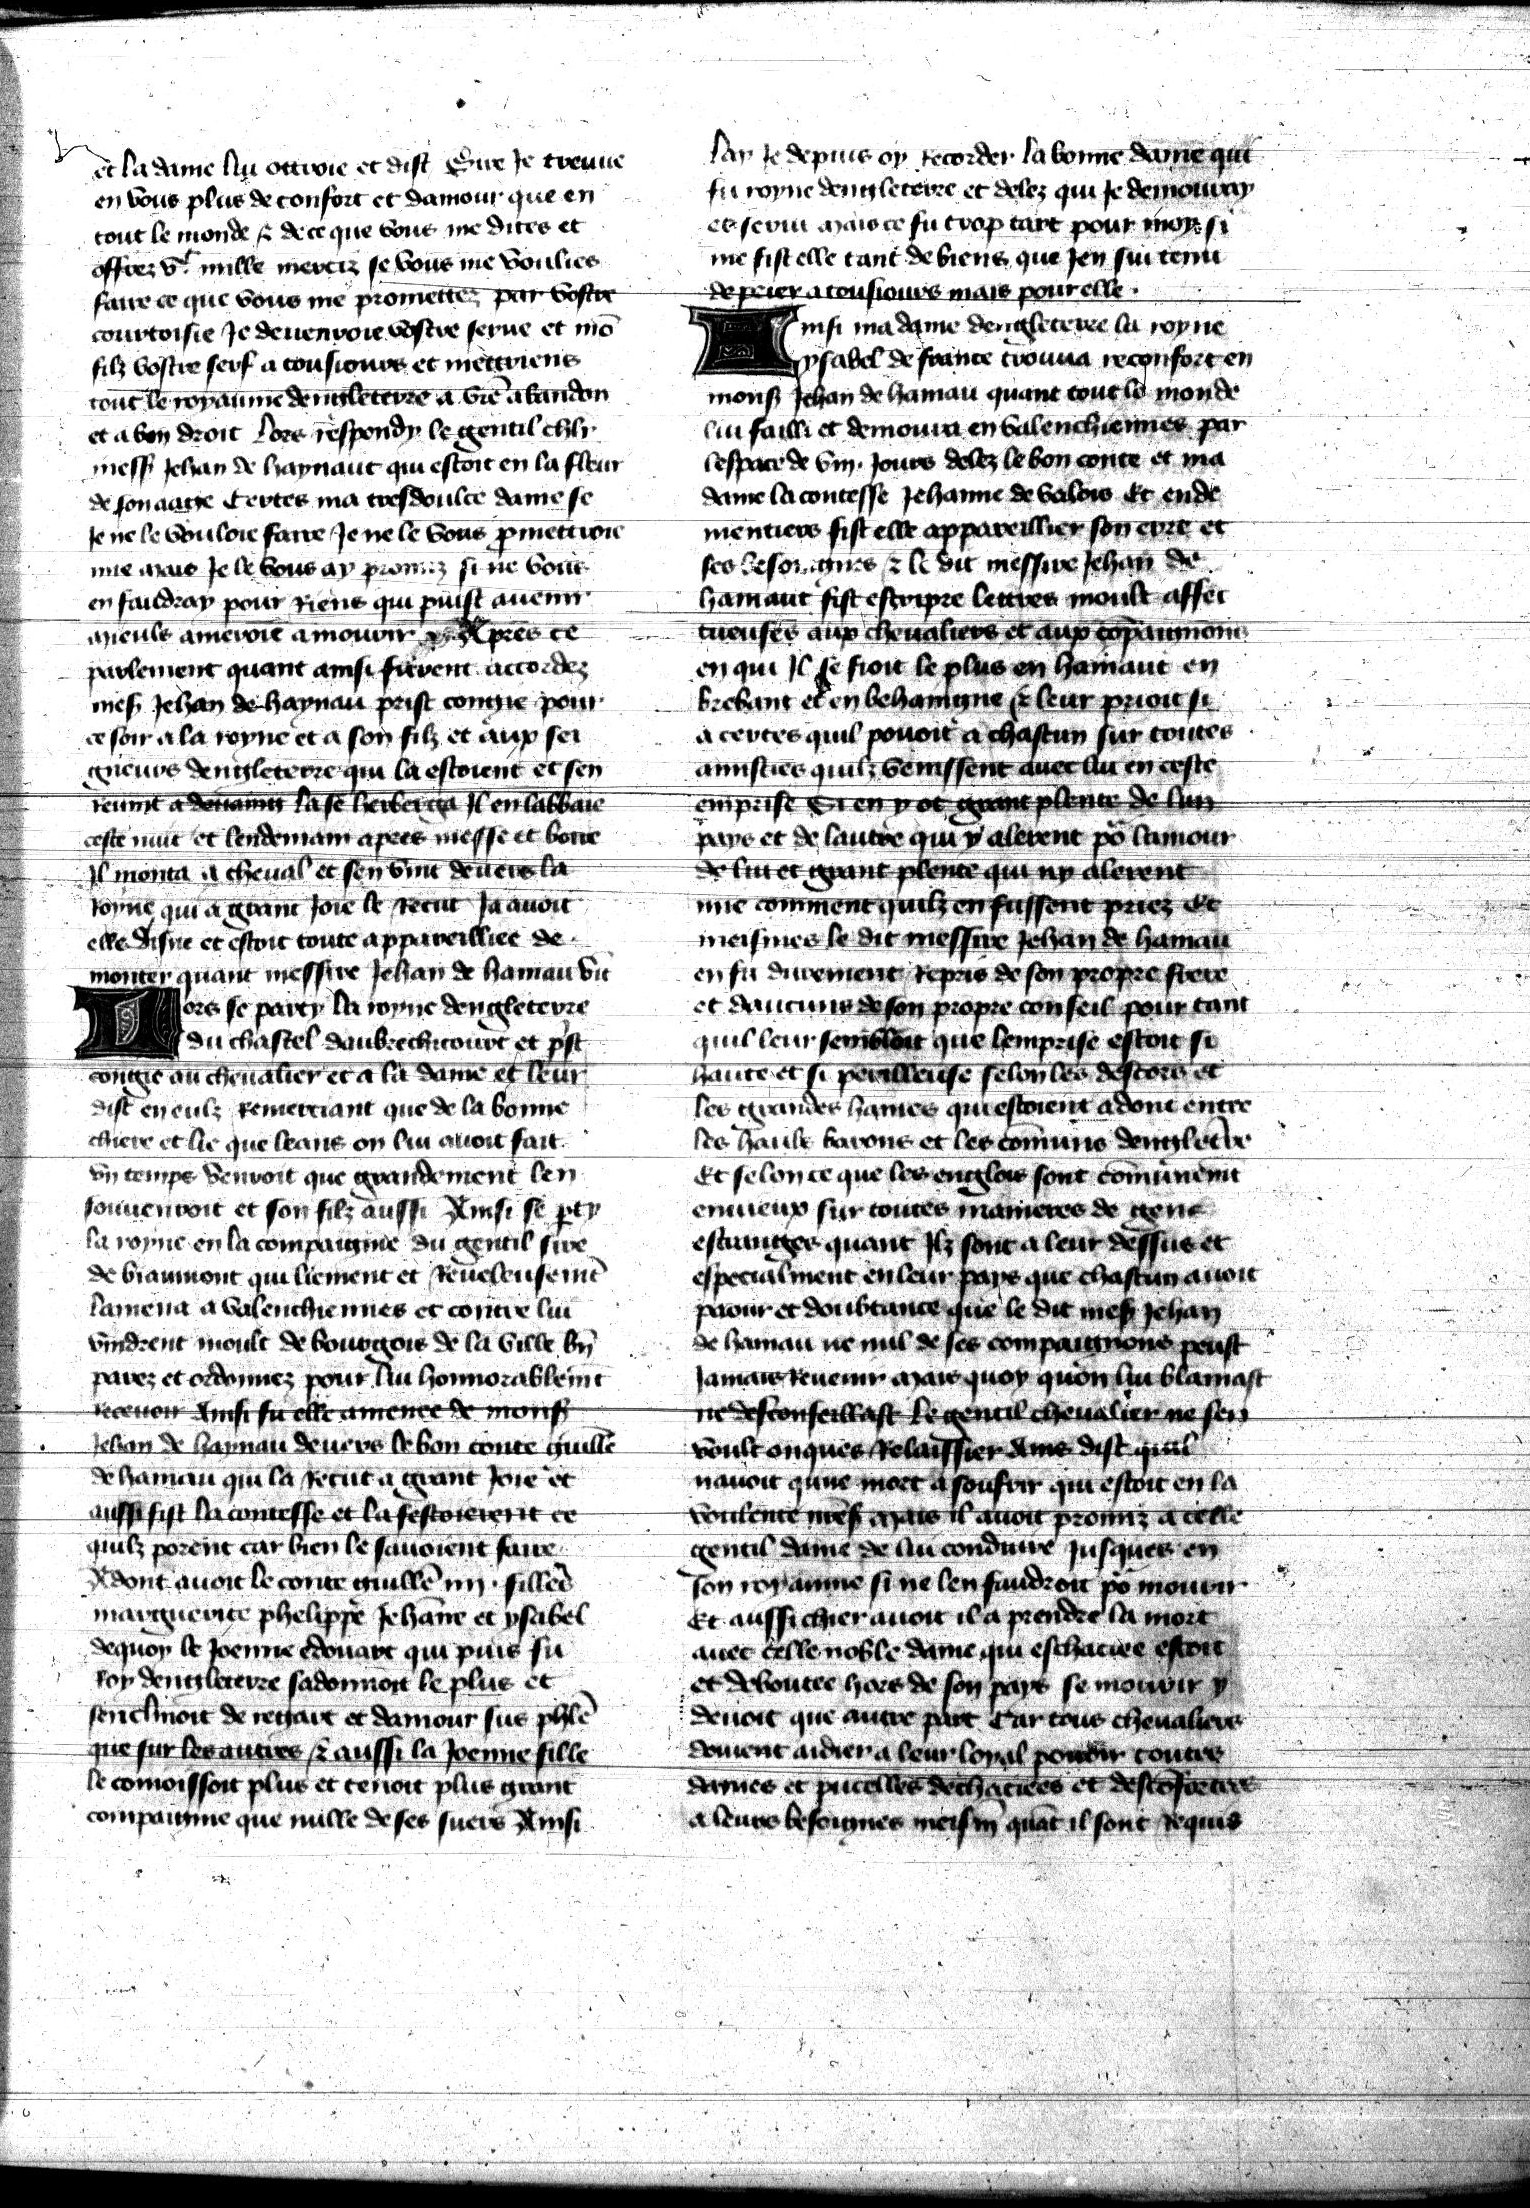 et la dame lui ottroie et dist Que Je treuue
en vous plus de confort et damour que en
tout le monde & de ce que vous me dites et
offrez v.c mille merciz se vous me voulies
faire ce que vous me promettez par vostre
courtoisie Je deuenroie vostre serue et mō
filz vostre serf a tousiours et mettriens
tout le royaume dengleterre a vr̄e abandon
et a bon droit Lors respondy le gentil chlr
mess Jehan de haynaut qui estoit en la fleur
de son aage Certes ma tresdoulce dame se
Je ne le vouloie faire Je ne le vous ꝓmettroie
mie mais Je le vous ay promiz si ne vous
en faudray pour Riens qui puist auenir
mieulx ameroie a mourir Apres ce
parlement quant ainsi furent accordez
mess Jehan de haynau prist congie pour
ce soir a la royne et a son filz et aux sei
gneurs dengleterre qui la estoient et sen
reuint a la se herberga Il en labbaie
ceste nuit et lendemain apres messe et boire
Il monta a cheual et sen vint deuers la
royne qui a grant Joie le Recut Ja auoit
elle disne et estoit toute appareilliee de
monter quant messire Jehan de hainau vīt
Lors se party la royne dengleterre
du chastel daubrechicourt et p̄st
congie au cheualier et a la dame et leur
dist en eulz Remerciant que de la bonne
chiere et lie que leans on lui auoit fait
vn temps venroit que grandement len
souuenroit et son filz aussi Ainsi se ꝑty
la royne en la compaignie du gentil sire
de biaumont qui liement et Reueleusemēt
lamena a valenchiennes et contre lui
vindrent moult de bourgois de la ville bn̄
parez et ordonnez pour lui honnorablemēt
receuoir Ainsi fu elle amenee de mons
Jehan de haynau deuers le bon conte guillē
de hainau qui la Recut a grant Joie et
aussi fist la contesse et la festoierent ce
quilz porent car bien le sauoient faire
Adont auoit le conte guillē iiij. filles
marguerite phelippe Jehāne et ysabel
dequoy le Joenne edouart qui puis fu
roy dengleterre sadonnoit le plus et
senclinoit de regart et damour sus phlē
que sur les autres & aussi la Joenne fille
le connoissoit plus et tenoit plus grant
compaignie que nulle de ses suers Ainsi
lay Je depuis oy Recorder la bonne dame qui
fu royne dengleterre et delez qui Je demouray
et serui mais ce fu trop tart pour moy si
me fist elle tant de biens que Jen sui tenu
de prier a tousiours mais pour elle.
Ainsi ma dame dengleterre la royne
ysabel de france trouua reconfort en
mons Jehan de hainau quant tout le monde
lui failli et demoura en valenchiennes par
lespace de viij. Jours delez le bon conte et ma
dame la contesse Jehanne de valois Et ende
mentiers fist elle appareillier son erre et
ses besoingnes & le dit messire Jehan de
hainaut fist escripre lettres moult affec
tueuses aux cheualiers et aux cōpaignons
en qui Il se fioit le plus en hainaut en
brebant et en behaingne & leur prioit si
a certes quil pouoit a chascun sur toutes
amisties quilz venissent auec lui en ceste
emprise Si en y ot grant plente de lun
pays et de lautre qui y alerent po lamour
de lui et grant plente qui ny alerent
mie comment quilz en fussent priez Et
meismes le dit messire Jehan de hainau
en fu durement Repris de son propre frere
et daucuns de son propre conseil pour tant
quil leur sembloit que lemprise estoit si
haute et si perilleuse selon les descors et
les grandes haines qui estoient adont entre
les hauls barons et les cōmuns denglet̄re
Et selon ce que les englois sont cōmunemēt
enuieux sur toutes manieres de gens
estranges quant Ilz sont a leur dessus et
especialment en leur pays que chascun auoit
paour et doubtance que le dit mess Jehan
de hainau ne nul de ses compaignons peust
Jamais Reuenir mais quoy quon lui blamast
ne desconseillast le gentil cheualier ne sen
voult onques Relaissier Ains dist quil
nauoit qune mort a soufrir qui estoit en la
voulente nr̄es mais il auoit promiz a celle
gentil dame de lui conduire Jusques en
son royaume si ne len faudroit po mourir
Et aussi chier auoit il a prendre la mort
auec celle noble dame qui eschaciee estoit
et deboutee hors de son pays se mourir y
deuoit que autre part Car tous cheualiers
doiuent aidier a leur loyal pouoir toutes
dames et pucelles dechaciees et
a leurs besoignes meism̄ quāt il sont Requis